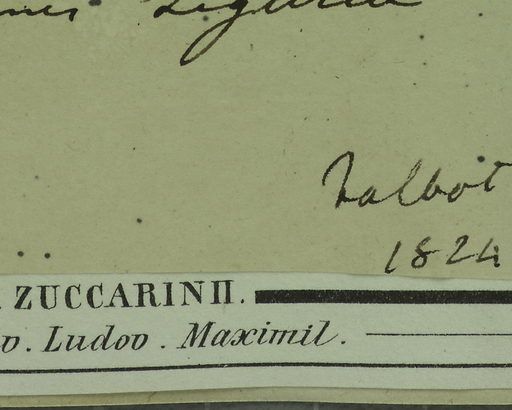 Liguria
Talbot
1824
ZUCCARINII.
v. Ludov. Maximil.